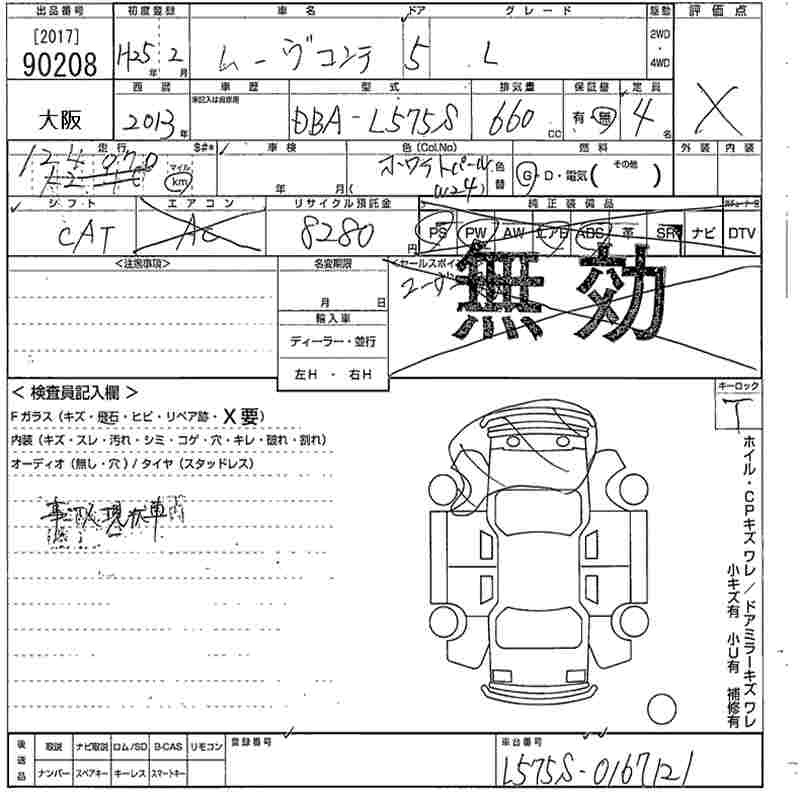 出品番号 初度登録 車名 ドア グレード 駆動 評価点
[2017] 90208 H25年 2月 ムーヴコンテ 5 L 2WD・4WD X
大阪 西暦 車歴 型式 排気量 保証書 定員
2013年 未記入は自家用 DBA-L575S 660cc 有・無 4名
走行 $#* 車検 色(Col.No) 燃料 外装 内装
124,070 マイル km 年 月 ホワイトパール(W24) 色替 G・D・電気( その他 )
シフト エアコン リサイクル預託金 純正装備品
CAT AC 8280円 PS PW AW エアB ABS 革 SR ナビ DTV
<注意事項> 名変期限 <セールスポイント
月 日 無効
輸入車
ディーラー・並行
左H・右H
<検査員記入欄> キーロック
Fガラス(キズ・飛石・ヒビ・リペア跡・X要) T
内装(キズ・スレ・汚れ・シミ・コゲ・穴・キレ・破れ・割れ)
オーディオ(無し・穴)/タイヤ(スタッドレス)
事故現状車
ホイル・CPキズ ワレ/ドアミラーキズ ワレ
小キズ有 小U有 補修有
後送品 取説 ナビ取説 ロム/SD B-CAS リモコン 登録番号 車台番号
ナンバー スペアキー キーレス スマートキー L575S-0167121